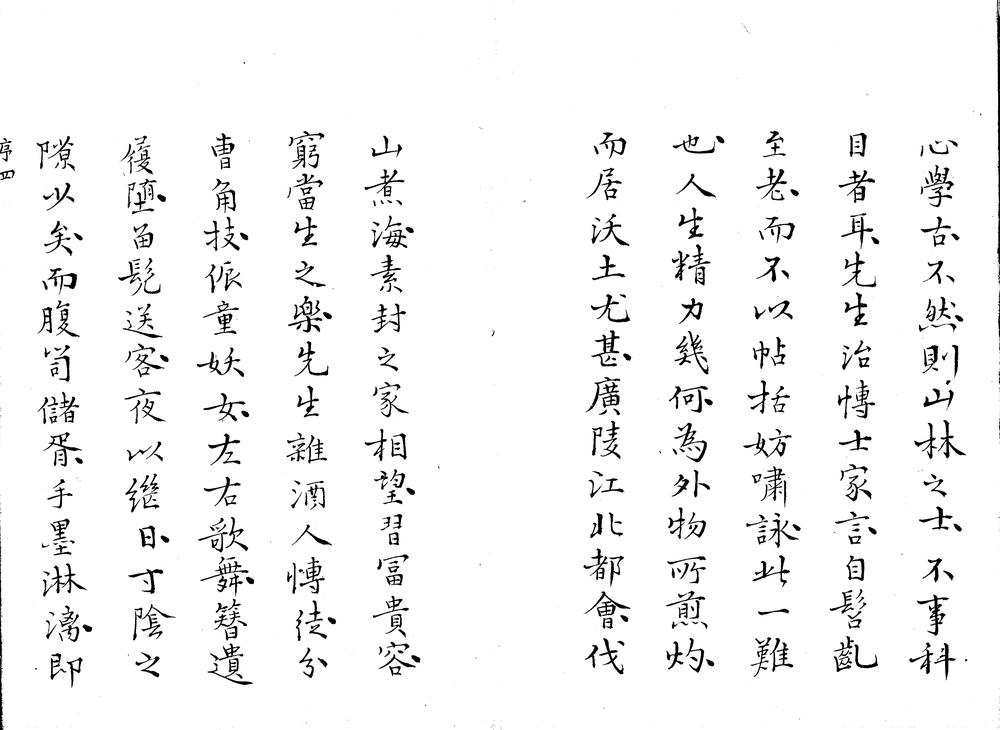 心學古不然則山林之士不事科
目者耳先生治博士家言自髫齔
至老而不以帖括妨嘯詠此一難
也人生精力幾何為外物所煎灼
而居沃土尤甚廣陵江北都會伐
山煮海素封之家相望習冨貴容
窮當生之樂先生雜酒人博徒分
曹角技侲童妖女左右歌舞簪遺
履墮留髡送客夜以繼日寸陰之
隙少矣而腹笥儲胥手墨淋漓即
序四